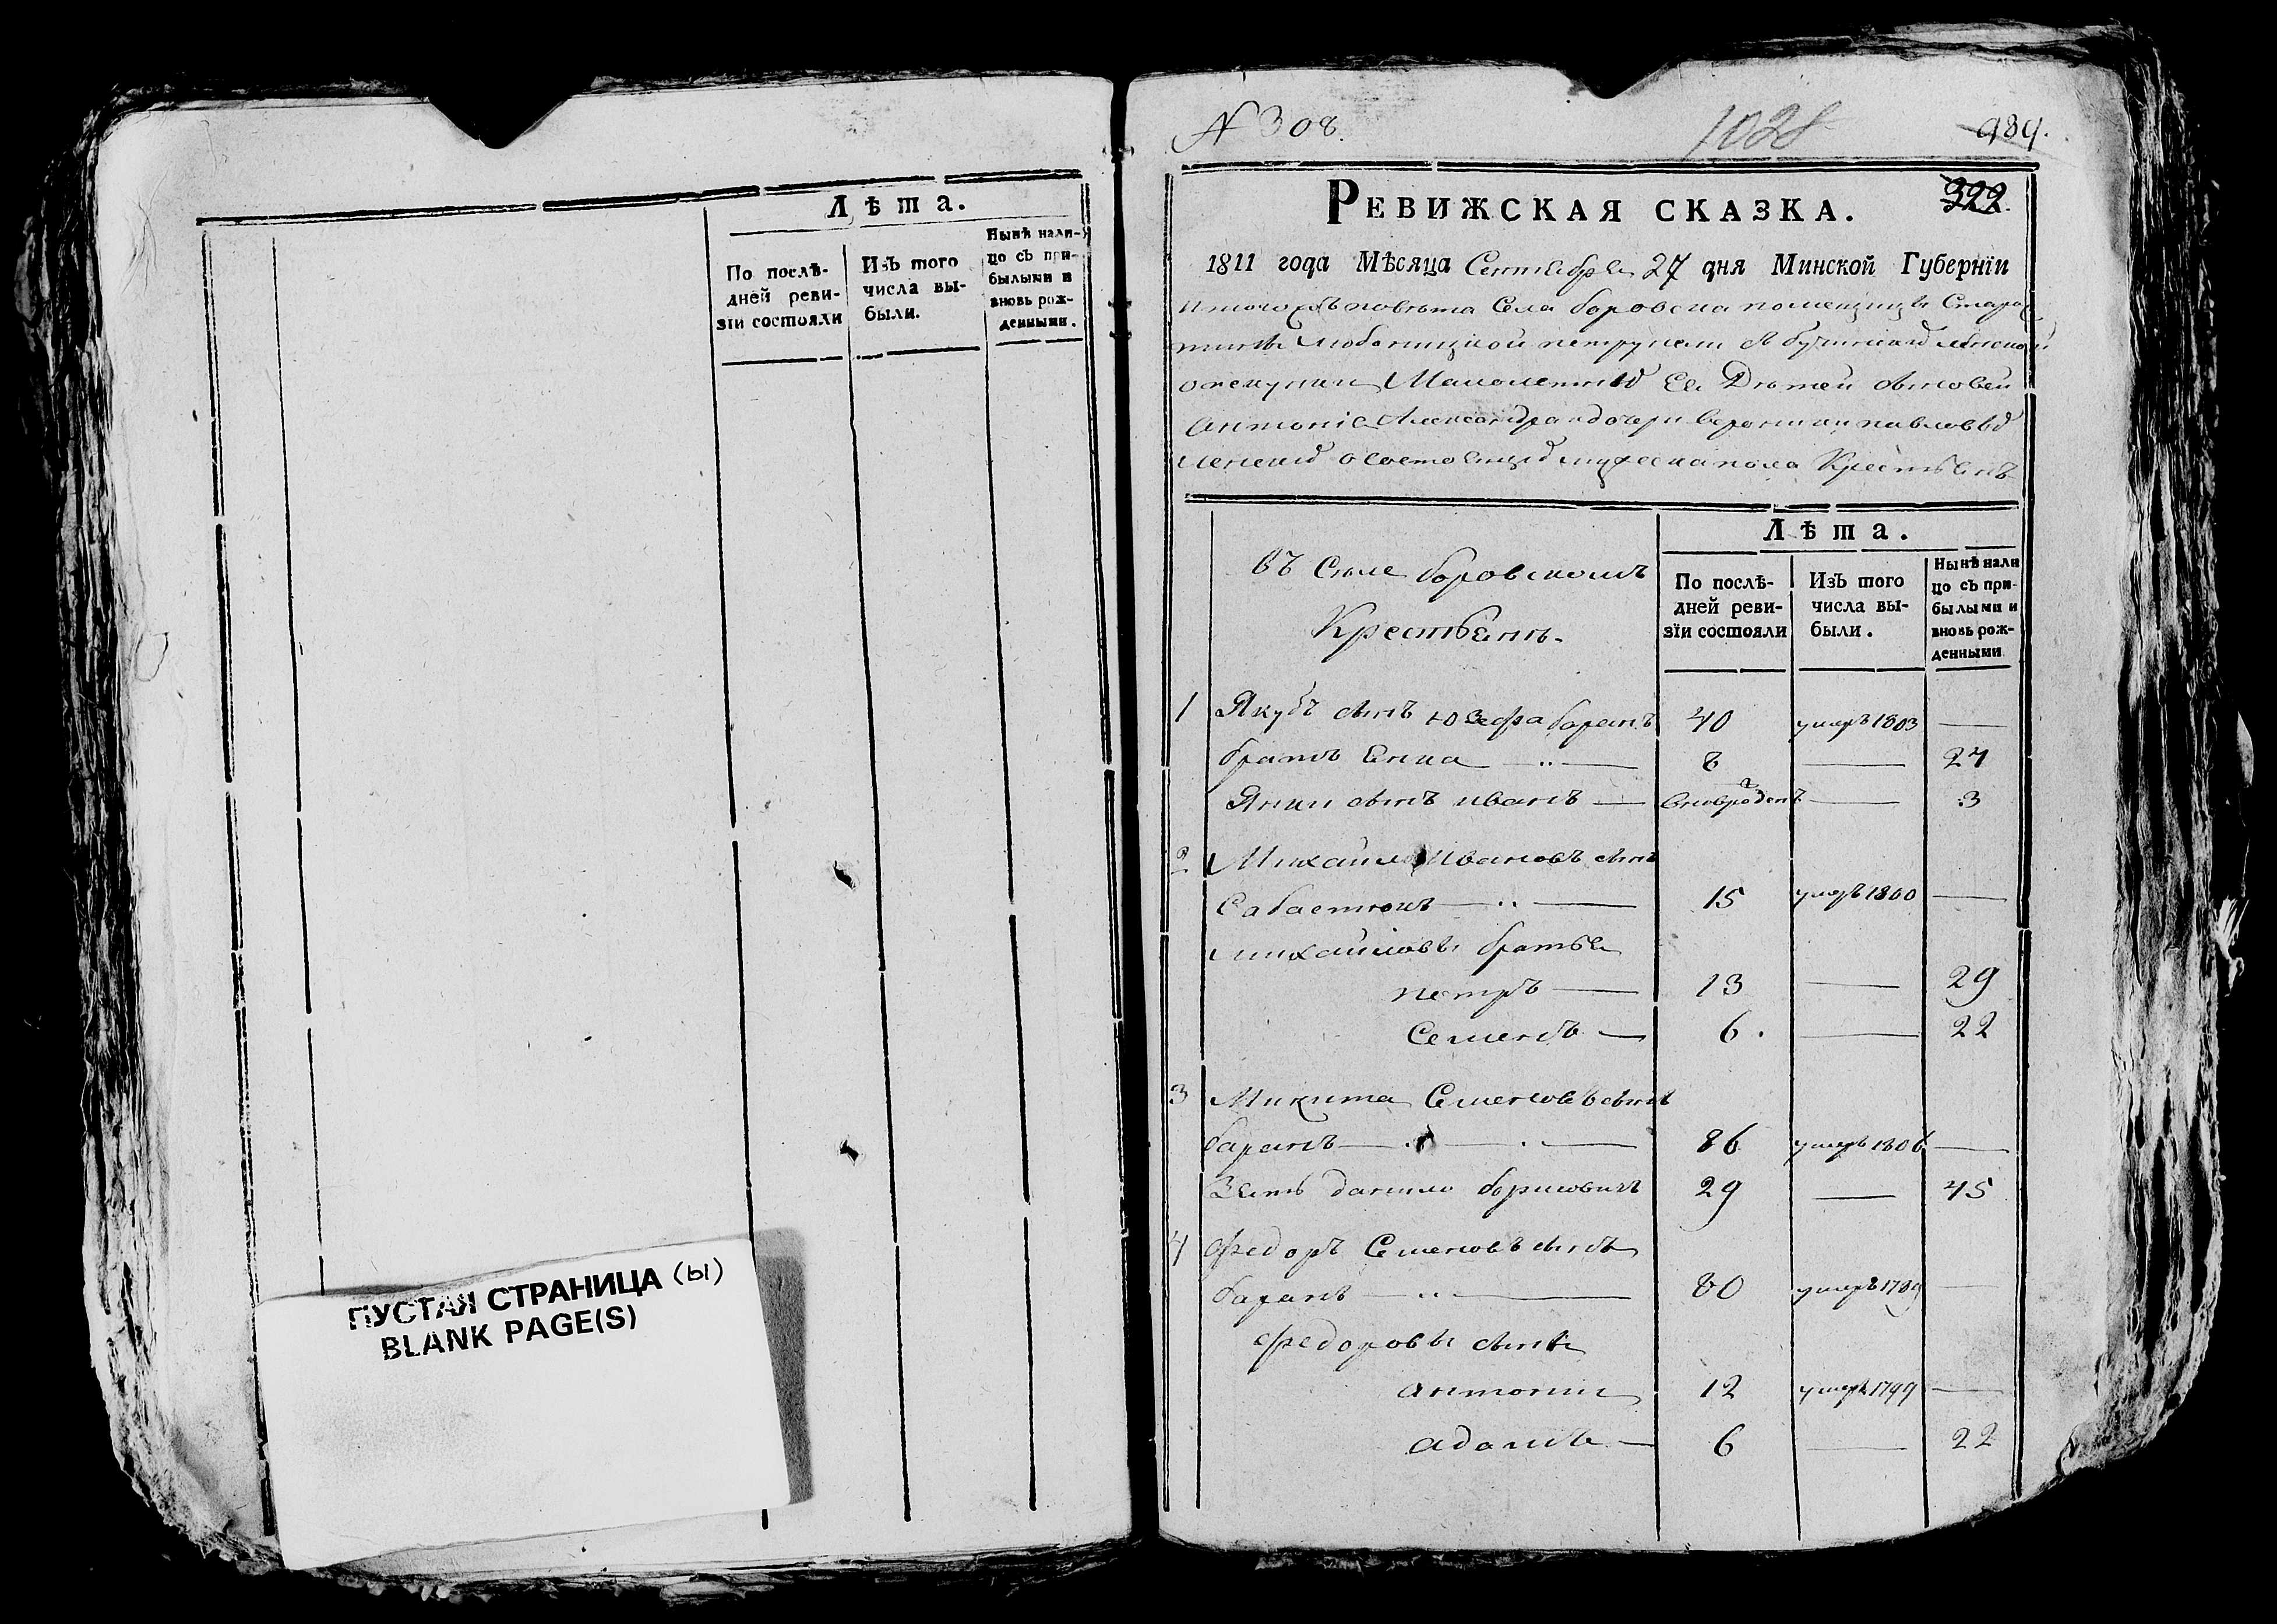 Лѣта.
По послѣ-
дней реви-
зіи состояли
Изъ того
числа вы-
были.
Нынѣ нали-
цо съ при-
былыми и
вновь рож-
денными.
ПУСТАЯ СТРАНИЦА (ы)
BLANK PAGE(S)
N 308.
1028
989.
РЕВИЖСКАЯ СКАЗКА.
322.
1811 года Мѣсяца Сентебре 27 дня Минской Губерніи
повета Села боровска помещицы
опекуни Малолетних Ее Дѣтей
антоніа Александра и дочери павловых
о состоещих мужеска пола Крестьенъ
въ Селе боровскомъ
Крестьенъ.
Лѣта.
По послѣ-
дней реви-
зіи состояли
Изъ того
числа вы-
были.
Нынѣ нали
цо съ при-
былыми и
вновь рож-
денными
1 Якубъ сынъ юзефа баранъ 40 умеръ 1803 —
братъ Енка — 8 — 24
Янки сынъ иванъ — вновроденъ — 3
2 Михайло Ивановъ сынъ
Сабастюкъ — 15 умеръ 1800 —
михайловы братье
петръ — 13 — 29
Семенъ — 6. — 22
3 Микита Семеновъ сынъ
баранъ — 86 умеръ 1806 —
Зеть данило борисовичъ 29 — 45
4 федоръ Семеновъ сынъ
баранъ — 80 умеръ 1789 —
федоровы сыны
антони 12 умеръ 1799 —
адамъ — 6 — 22